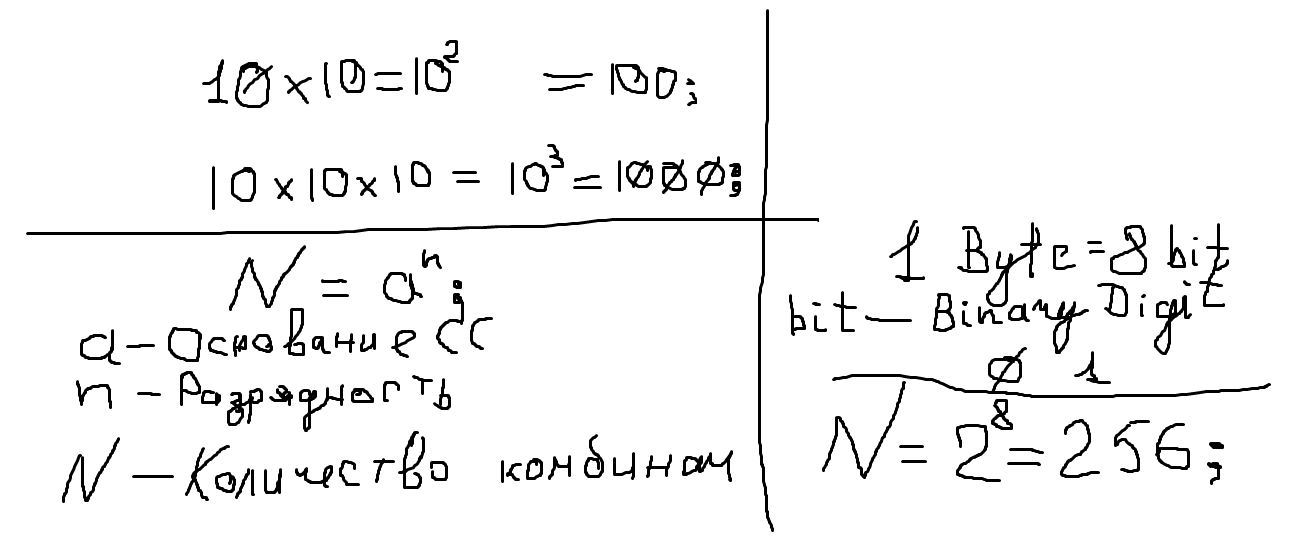 10×10=10² =100;
10×10×10=10³=1000;
N=aⁿ;
a-Основание СС
n-Разрядность
N-Количество комбинац
1 Byte=8 bit
bit-Binary Digit
0 1
N=2⁸=256;